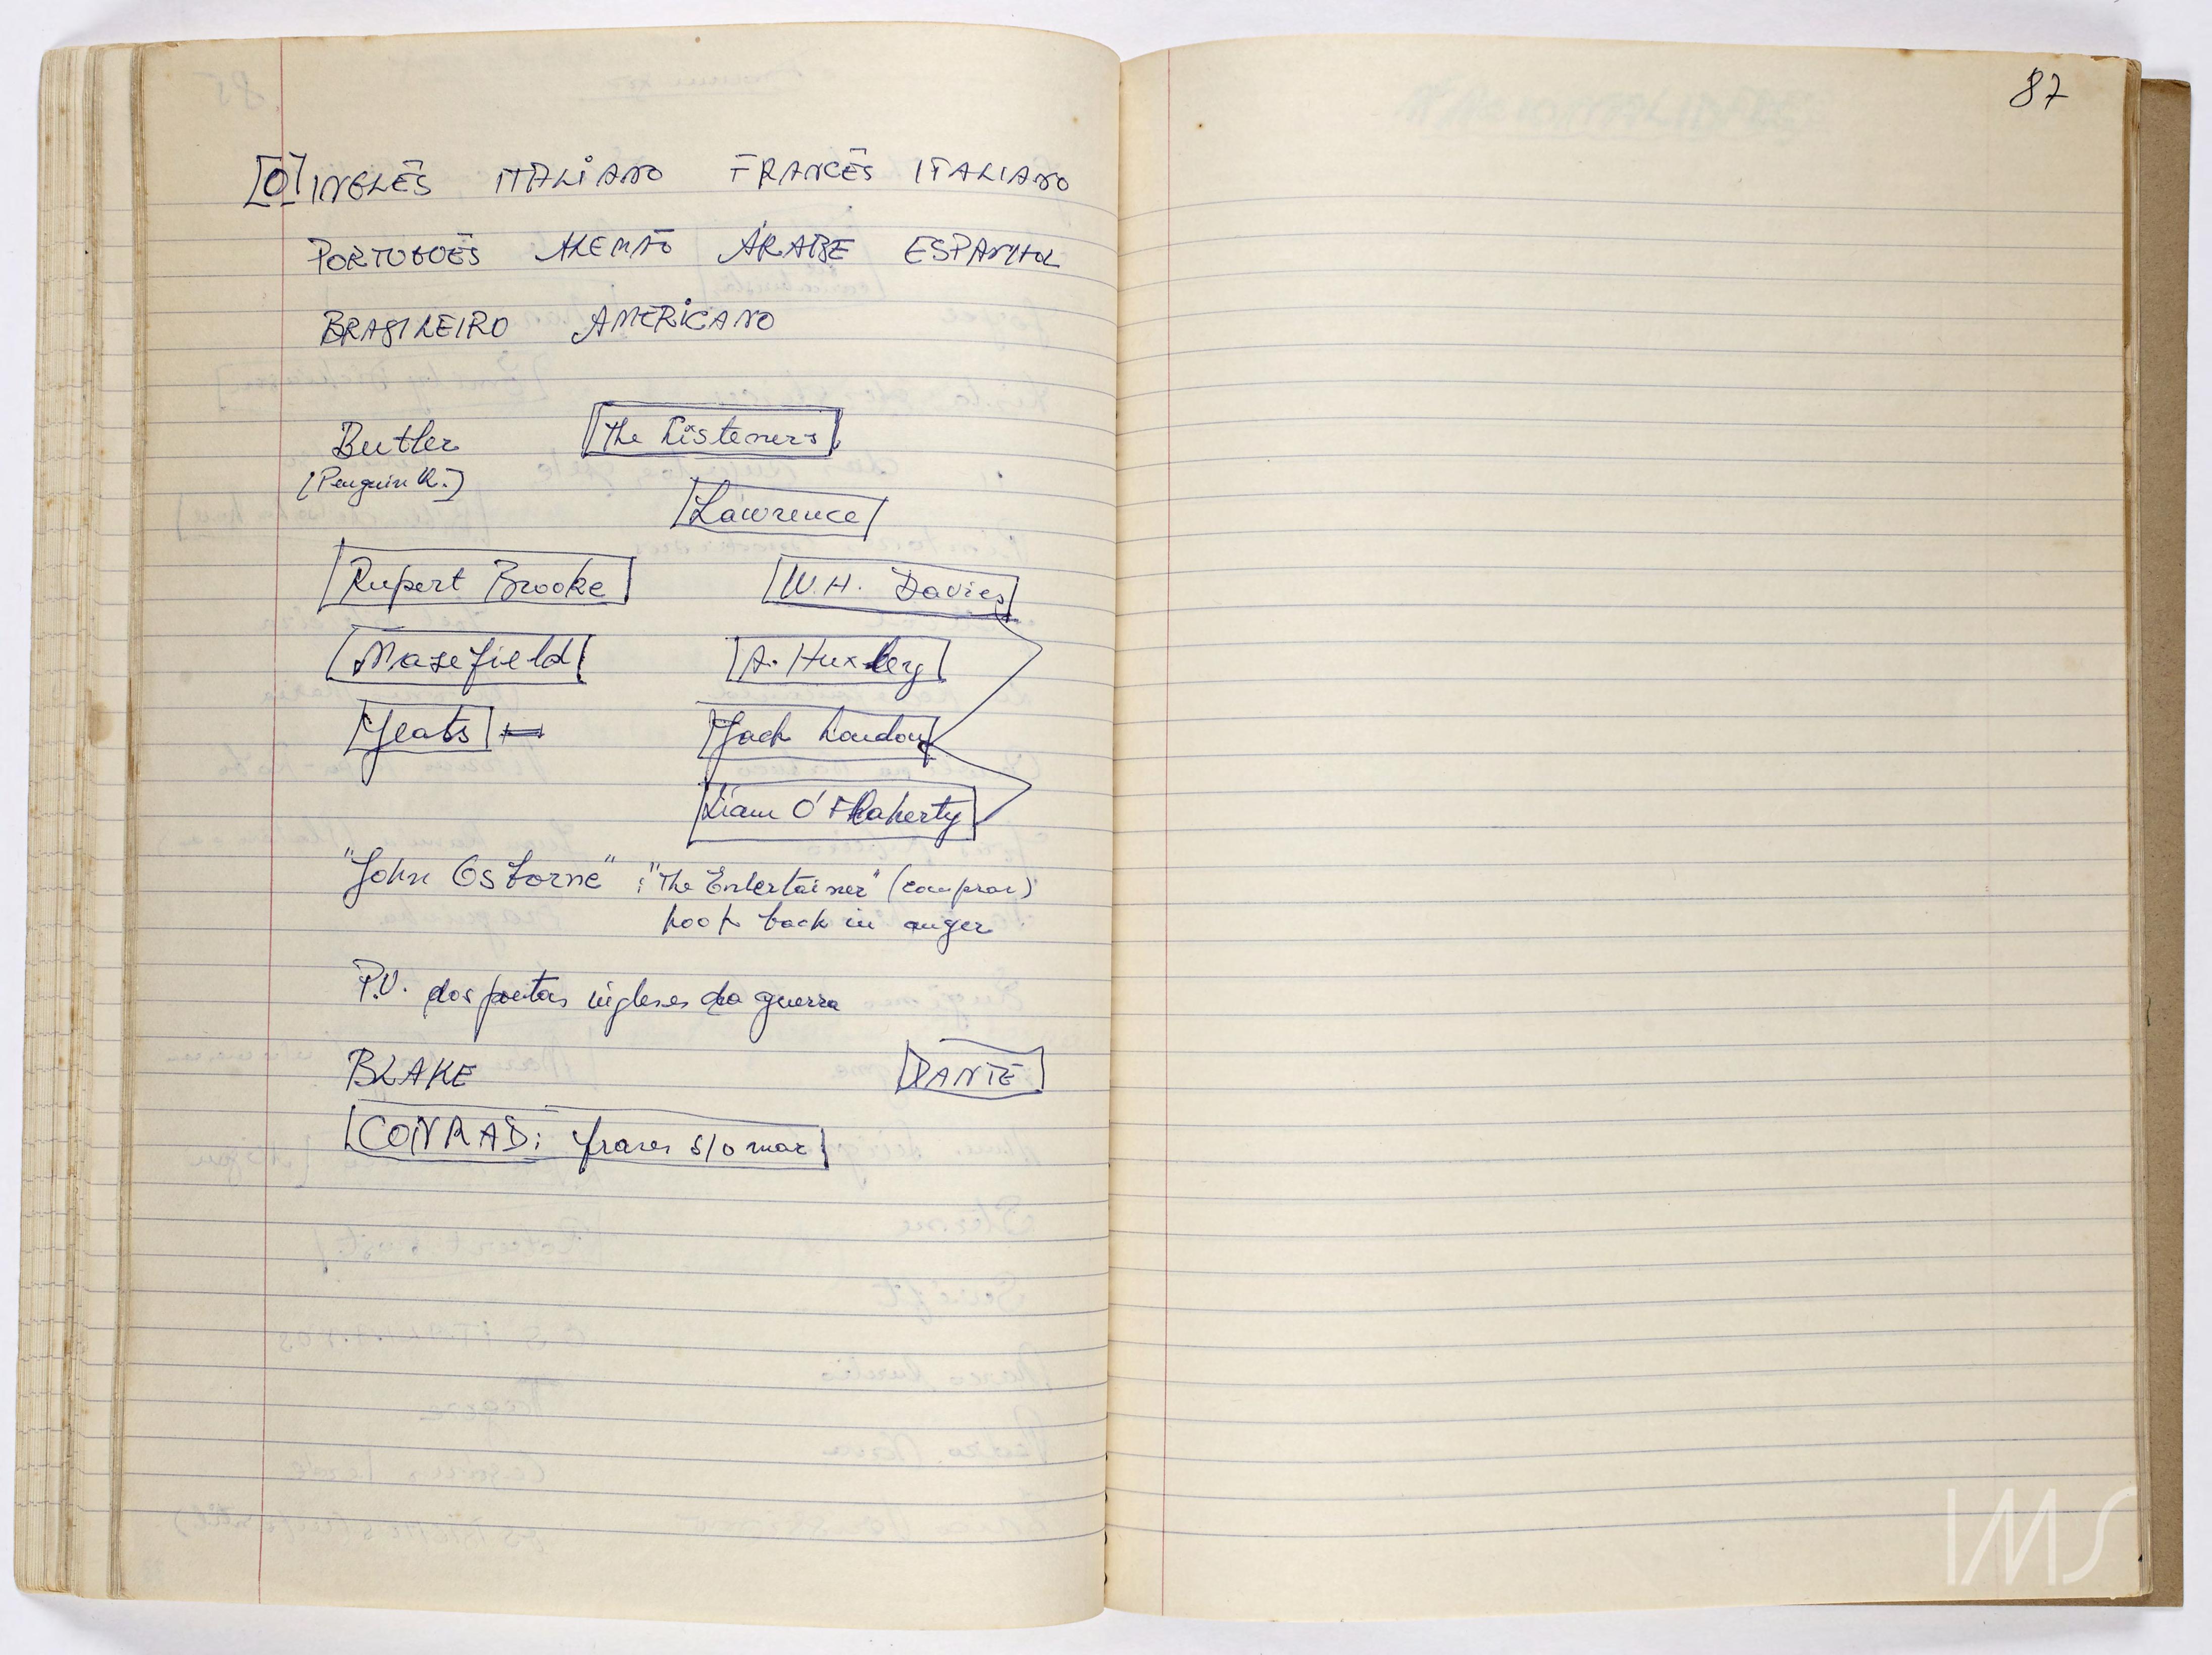 [O] INGLÊS ITALIANO FRANCÊS ITALIANO
PORTUGUÊS ALEMÃO ÁRABE ESPANHOL
BRASILEIRO AMERICANO
Butler The Listeners
[Penguin R.]
Lawrence
Rupert Brooke W.H. Davies
Masefield A. Huxley
Yeats Jack London
Liam O'Flaherty
"John Osborne" : "The Entertainer" (comprar)
Look back in anger
P.V. dos poetas ingleses da guerra
BLAKE DANTE
CONRAD: frases s/o mar
87
IMS